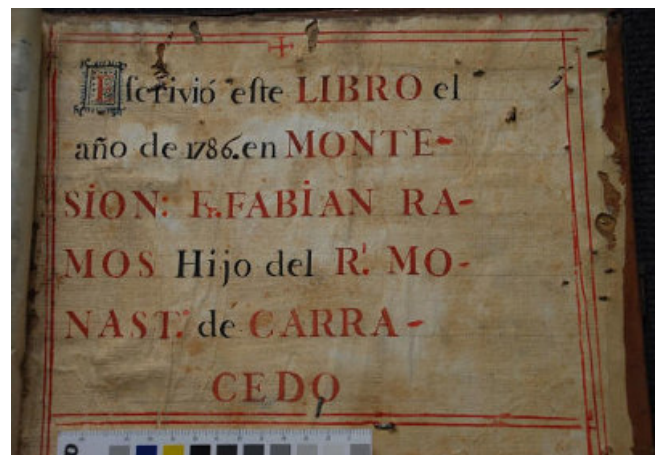 Iſcrivió eſte LIBRO el
año de 1786. en MONTE-
SÍON: Fr. FABÍAN RA-
MOS Hijo del R.l MO-
NAST.o de CARRA-
CEDO